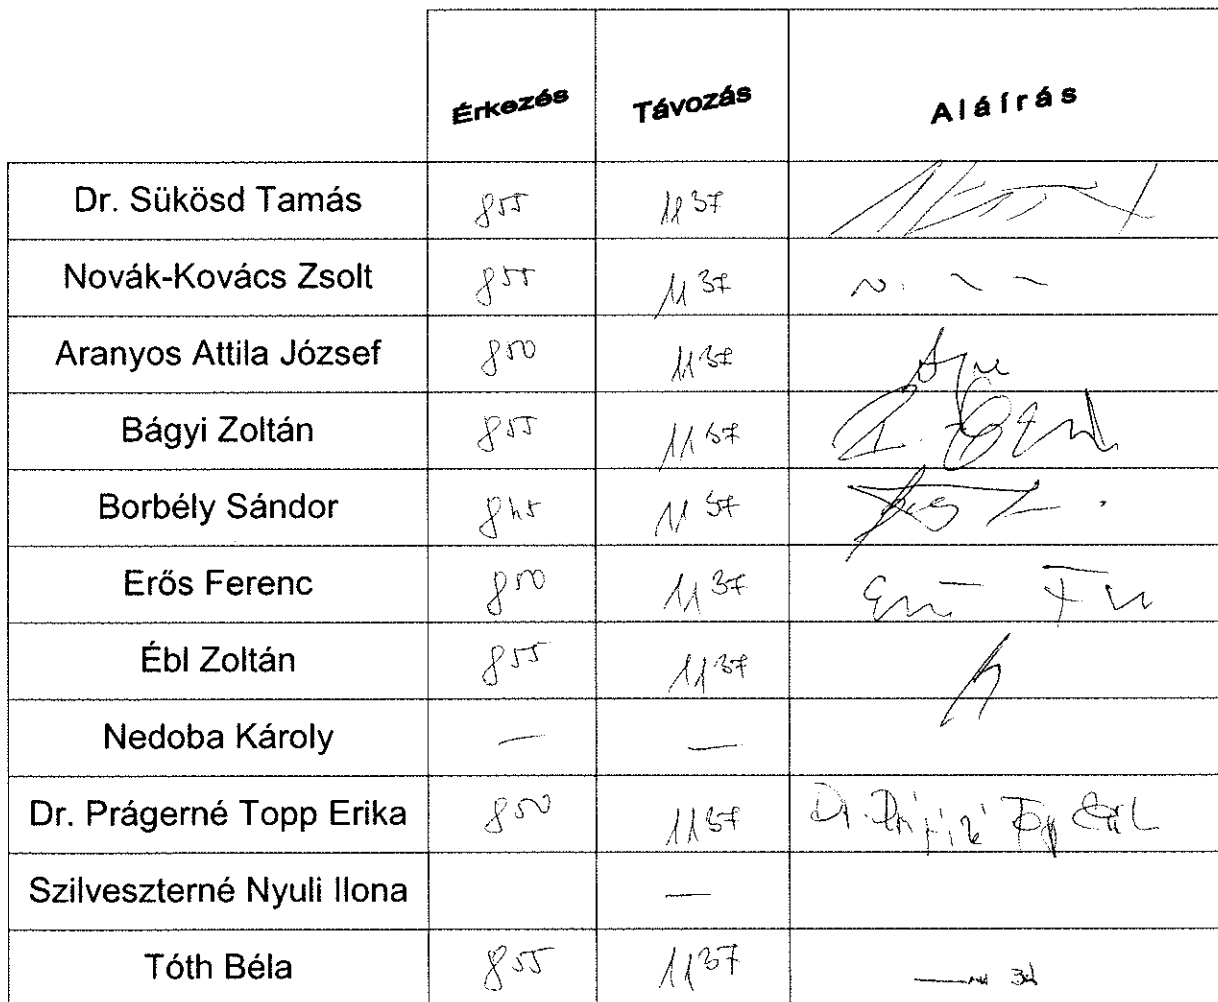 Érkezés Távozás Aláírás
Dr. Sükösd Tamás 8⁵⁵ 11³⁷
Novák-Kovács Zsolt 8⁵⁵ 11³⁷
Aranyos Attila József 8⁵⁰ 11³⁷
Bágyi Zoltán 8⁵⁵ 11³⁷
Borbély Sándor 8⁴⁵ 11³⁷
Erős Ferenc 8⁵⁰ 11³⁷
Ébl Zoltán 8⁵⁵ 11³⁷
Nedoba Károly — —
Dr. Prágerné Topp Erika 8⁵⁰ 11³⁷ Dr. Prágerné Topp Erika
Szilveszterné Nyuli Ilona —
Tóth Béla 8⁵⁵ 11³⁷